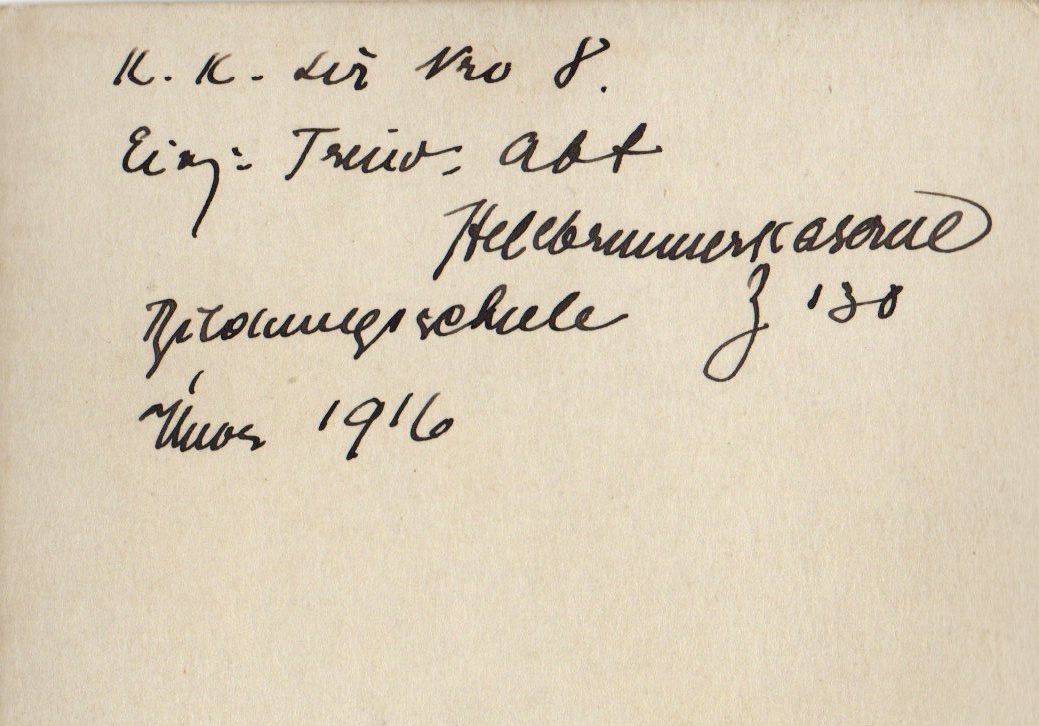 K. K. Lir Nro 8.
Einj: Freiw. Abt
Hellbrunnerkaserne
Bildungsschule Z 130
Únor 1916